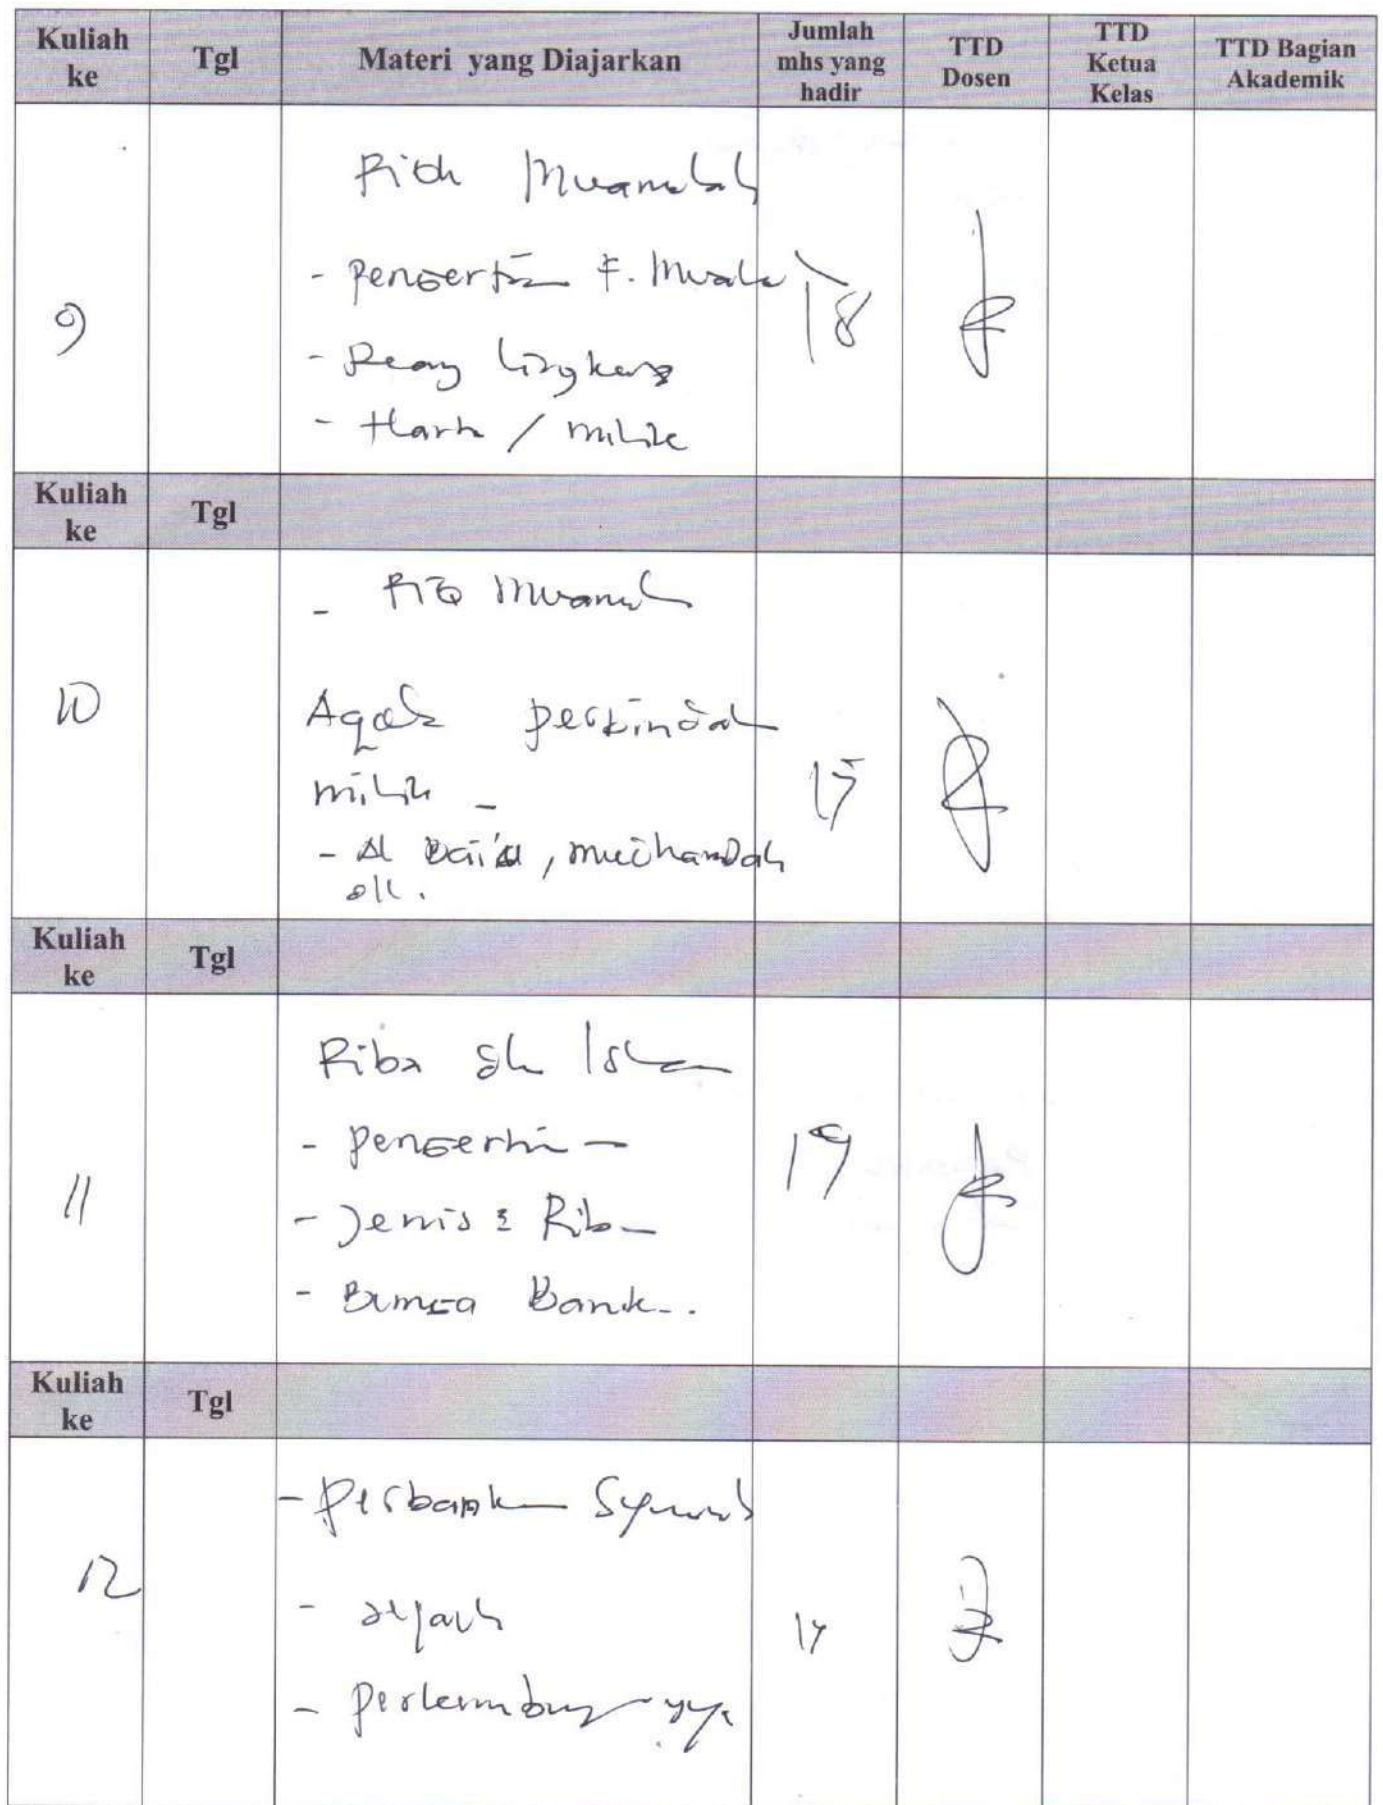 Kuliah ke Tgl Materi yang Diajarkan Jumlah mhs yang hadir TTD Dosen TTD Ketua Kelas TTD Bagian Akademik
Fiqh Muamalah
- Pengertian F. Muala
9 18
- Ruang lingkup
- Harta / milik
Kuliah ke Tgl
- Fiq Muamalah
10 Aqad perpindah
milik - 15
- Al Bai'u, mudharabah
dll.
Kuliah ke Tgl
Riba dlm Islam
- Pengertian 19
11
- Jenis2 Riba
- Bunga Bank..
Kuliah ke Tgl
- Perbankan Syariah
12
- Sejarah
- Perkembangannya